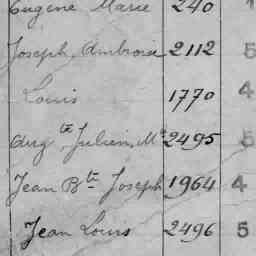 Eugène Marie 240 1
Joseph, Ambroise 2112 5
Louis 1770 4
Aug.te Julien, M.e 2495 5
Jean B.te Joseph 1964 4
Jean Louis 2496 5